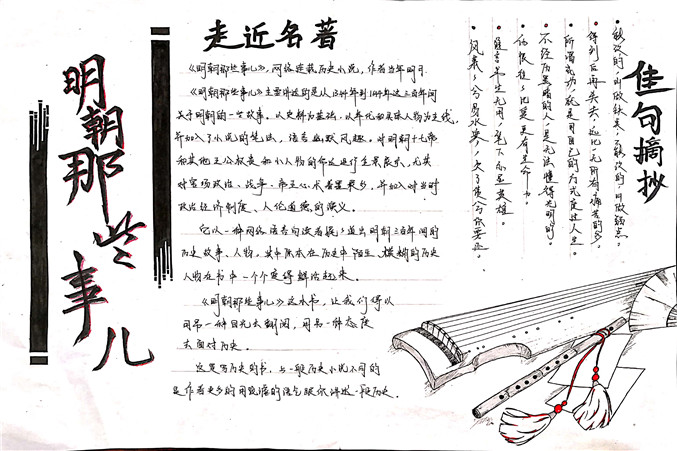 明朝那些事儿
走近名著
《明朝那些事儿》，网络连载历史小说，作者当年明月
《明朝那些事儿》主要讲述的是从1344年到1644年这三百年间
关于明朝的一些故事。以史料为基础，以年代和具体人物为主线，
并加入了小说的笔法，语言幽默风趣。对明朝十七帝
和其他王公权贵和小人物的命运进行全景展示，尤其
对官场政治、战争、帝王心术着墨最多，并加入对当时
政治经济制度、人伦道德的演义。
它以一种网络语言向读者娓娓道出明朝三百年间的
历史故事、人物。其中原本在历史中陌生、模糊的历史
人物在书中一个个变得鲜活起来。
《明朝那些事儿》这本书，让我们得以
用另一种目光去朝阅，用另一种态度
去面对历史。
这是写历史的书，与一般历史小说不同的
是作者更多的用戏谑的语气跟你讲述一段历史。
佳句摘抄
·能改的，叫做缺点；不能改的，叫做弱点。
·得到后再失去，远比一无所有痛苦的多。
·所谓成功，就是用自己的方式度过人生。
·不经历黑暗的人，是无法懂得光明的。
·仇恨往往比爱更有生命力。
·谁言书生无用，笔下亦显英雄。